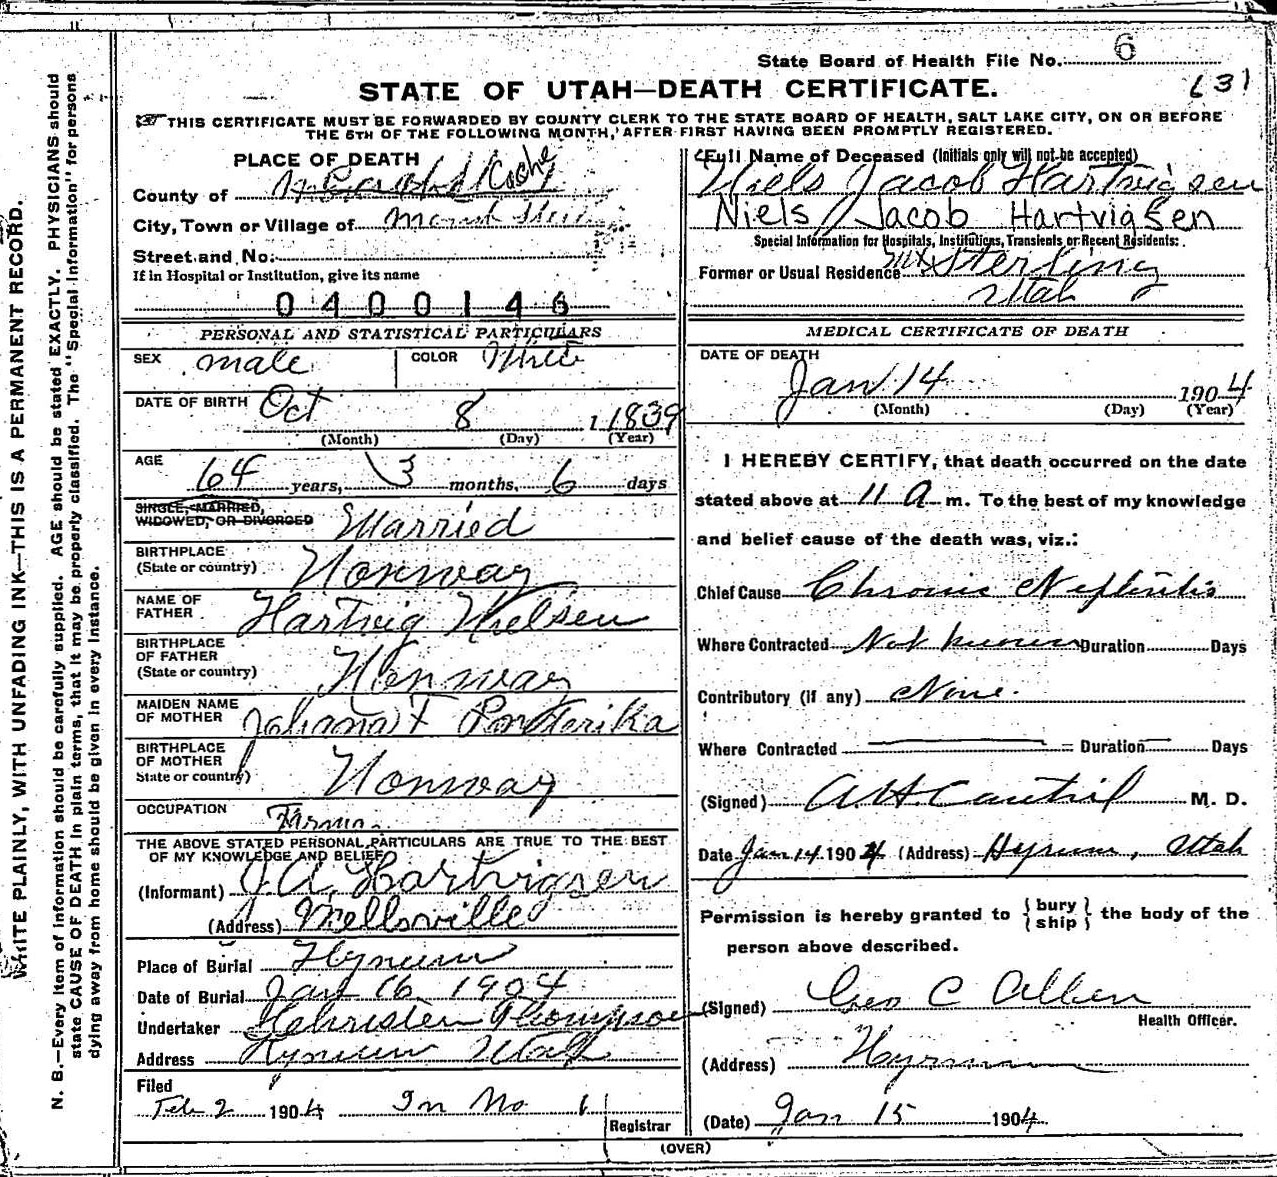 State Board of Health File No. 6
STATE OF UTAH—DEATH CERTIFICATE.
(31
THIS CERTIFICATE MUST BE FORWARDED BY COUNTY CLERK TO THE STATE BOARD OF HEALTH, SALT LAKE CITY, ON OR BEFORE
THE 5TH OF THE FOLLOWING MONTH, AFTER FIRST HAVING BEEN PROMPTLY REGISTERED.
WRITE PLAINLY, WITH UNFADING INK—THIS IS A PERMANENT RECORD.
N. B.—Every item of information should be carefully supplied. AGE should be stated EXACTLY. PHYSICIANS should
state CAUSE OF DEATH in plain terms, that it may be properly classified. The "Special Information" for persons
dying away from home should be given in every instance.
PLACE OF DEATH
County of Cache
City, Town or Village of
Street and No:
If in Hospital or Institution, give its name
0400146
PERSONAL AND STATISTICAL PARTICULARS
SEX male COLOR White
DATE OF BIRTH Oct 8 1 1839
(Month) (Day) (Year)
AGE 64 years, 3 months, 6 days
SINGLE, MARRIED,
WIDOWED, OR DIVORCED Married
BIRTHPLACE
(State or country) Norway
NAME OF
FATHER Hartvig Nielsen
BIRTHPLACE
OF FATHER
(State or country) Norway
MAIDEN NAME
OF MOTHER Johana F
BIRTHPLACE
OF MOTHER
State or country) Norway
OCCUPATION
THE ABOVE STATED PERSONAL PARTICULARS ARE TRUE TO THE BEST
OF MY KNOWLEDGE AND BELIEF
(Informant) J. A. Hartvigsen
(Address) Wellsville
Place of Burial Hyrum
Date of Burial Jan 16 1904
Undertaker Thompson
Address Hyrum Utah
Filed
Feb 2 1904 In No 1
Registrar
Full Name of Deceased (Initials only will not be accepted)
Niels Jacob Hartvigsen
Niels Jacob Hartvigsen
Special Information for Hospitals, Institutions, Transients or Recent Residents:
Former or Usual Residence Mt Sterling
Utah
MEDICAL CERTIFICATE OF DEATH
DATE OF DEATH
Jan 14 1904
(Month) (Day) (Year)
I HEREBY CERTIFY, that death occurred on the date
stated above at 11 a m. To the best of my knowledge
and belief cause of the death was, viz.:
Chief Cause Chronic Nephritis
Where Contracted Not known Duration Days
Contributory (if any) None.
Where Contracted Duration Days
(Signed) A. H. Cantril M. D.
Date Jan 14 1904 (Address) Hyrum, Utah
Permission is hereby granted to {bury
ship} the body of the
person above described.
(Signed) Geo C Allen
Health Officer.
(Address) Hyrum
(Date) Jan 15 1904
(OVER)